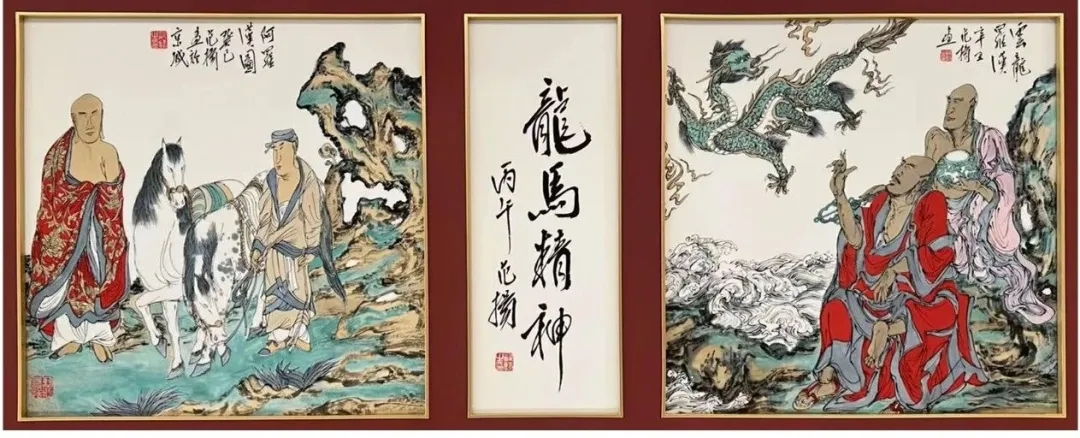 阿羅
漢圖
癸巳
范揚
畫於
京城
龍馬精神
丙午 范揚
雲龍
羅漢
辛丑
范揚
畫